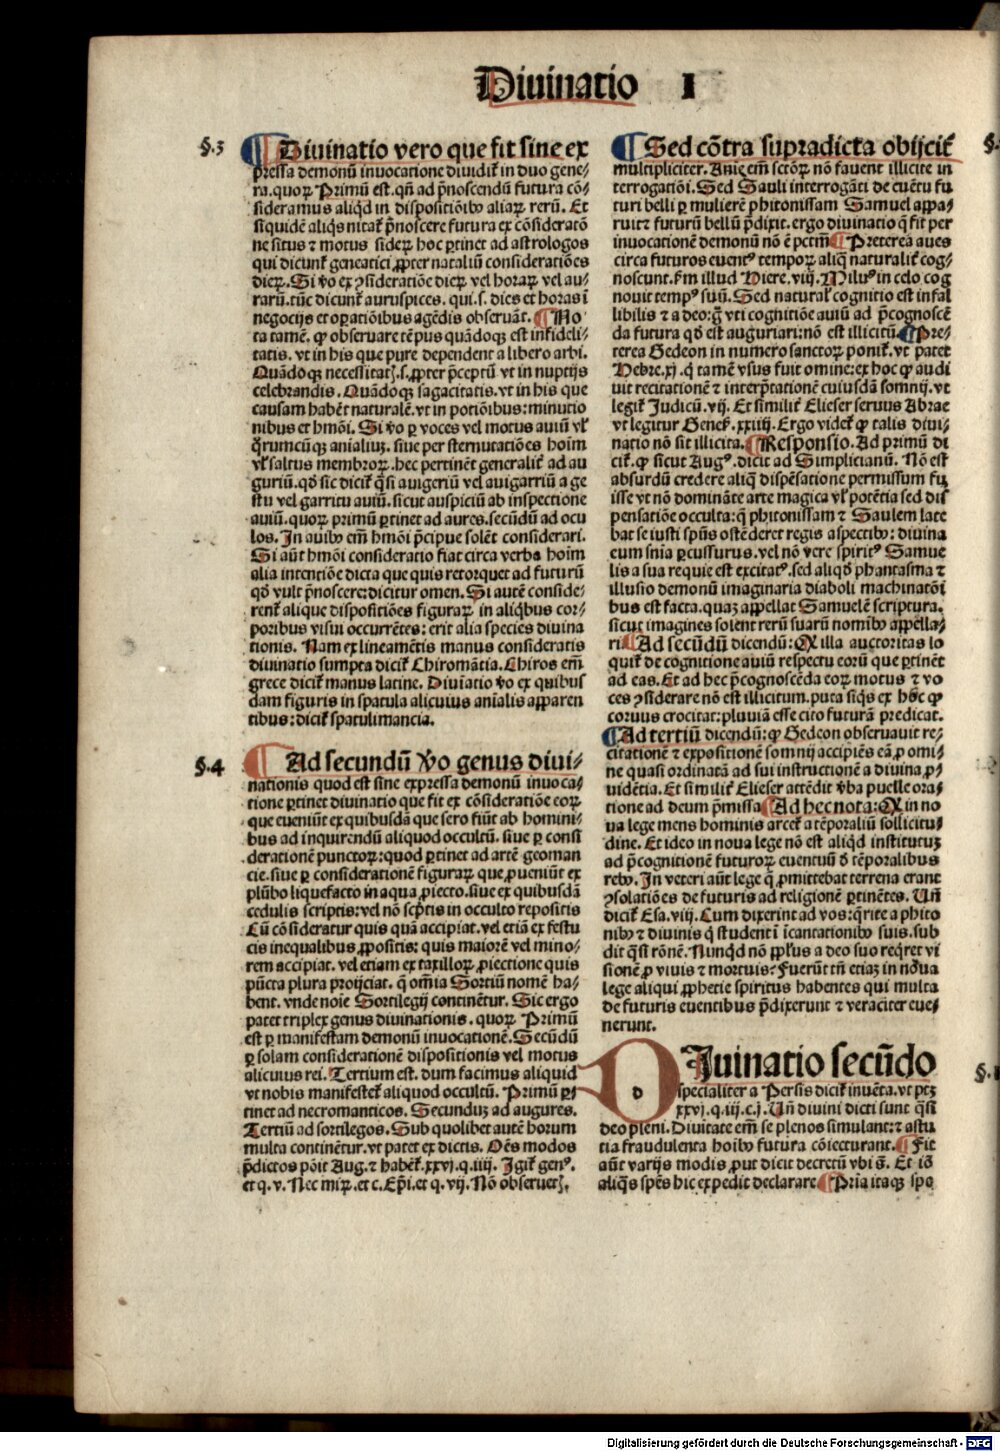 Diuinatio I
§.3
¶ Diuinatio vero que fit sine ex
pressa demonū inuocatione diuidit᷑ in duo gene-
ra. quoꝝ Primū est. qn̄ ad p̄noscendū futura cō-
sideramus aliqd in dispositiōibꝰ aliaꝝ rerū. Et
siquidē aliqs nitat᷑ p̄noscere futura ex cōsideratō
ne situs ⁊ motus sideꝝ hoc ꝑtinet ad astrologos
qui dicunt᷑ geneatici ꝓpter nataliū consideratiōes
dieꝝ. Si v̄o ex ꝯsideratiōe dieꝝ vel horaꝝ vel au-
rarū. tūc dicunt᷑ auruspices. qui .s. dies et horas ī
negocijs et oꝑatiōibus agēdis obseruāt. ¶ No
ta tamē. ꝙ obseruare tēpus quādoqꝫ est infideli-
tatis. vt in his que pure dependent a libero arbi.
Quādoqꝫ necessitatꝭ .s. ꝓpter p̄ceptū vt in nuptijs
celebrandis. Quādoqꝫ sagacitatis. vt in his que
causam habēt naturalē. vt in potiōibus: minutio
nibus et hmōi. Si v̄o ꝑ voces vel motus auiū vl̓
q̄rumcūqꝫ anialiuꝫ. siue per sternutatiōes hoīm
vl̓ saltus membroꝝ. hec pertinēt generalit᷑ ad au
guriū. qd̄ sic dicit᷑ q̄si auigeriū vel auigarriū a ge
stu vel garritu auiū. sicut auspiciū ab inspectione
auiū. quoꝝ primū ꝑtinet ad aures. secūdū ad ocu
los. In auibꝰ em̄ hmōi p̄cipue solēt considerari.
Si aūt hmōi consideratio fiat circa verba hoīm
alia intentiōe dicta que quis retorquet ad futurū
qd̄ vult p̄noscere: dicitur omen. Si autē conside-
rent᷑ alique dispositiōes figuraꝝ in aliqbus cor-
poribus visui occurrētes: erit alia species diuina
tionis. Nam ex lineamētis manus consideratis
diuinatio sumpta dicit᷑ Chiromātia. Chiros em̄
grece dicit᷑ manus latine. Diuinatio v̄o ex quibus
dam figuris in spatula alicuius anialis apparen
tibus: dicit᷑ spatulimancia.
§.4
¶ Ad secundū v̄o genus diui-
nationis quod est sine expressa demonū inuoca-
tione ꝑtinet diuinatio que fit ex cōsideratiōe eoꝝ
que eueniūt ex quibusdā que sero fiūt ab homini-
bus ad inquirendū aliquod occultū. siue ꝑ consi
derationē punctoꝝ: quod ꝑtinet ad artē geoman
cie. siue ꝑ considerationē figuraꝝ que ꝓueniūt ex
plūbo liquefacto in aqua ꝓiecto. siue ex quibusdā
cedulis scriptis: vel nō scptis in occulto repositis
Cū cōsideratur quis quā accipiat. vel etiā ex festu
cis inequalibus ꝓpositis: quis maiorē vel mino-
rem accipiat. vel etiam ex taxilloꝝ ꝓiectione quis
pūcta plura proijciat. q̄ om̄ia Sortiū nomē ha-
bent. vnde noīe Sortilegij continētur. Sic ergo
patet triplex genus diuinationis. quoꝝ Primū
est ꝑ manifestam demonū inuocationē. Secūdū
ꝑ solam considerationē dispositionis vel motus
alicuius rei. Tertium est. dum facimus aliquid
vt nobis manifestet᷑ aliquod occultū. Primū ꝑ-
tinet ad necromanticos. Secunduꝫ ad augures.
Tertiū ad sortilegos. Sub quolibet autē horum
multa continēt᷑. vt patet ex dictis. Oēs modos
p̄dictos pōit Aug. ⁊ habēt᷑ .xxvi. q. iiij. Igit᷑ genꝰ.
et q. v. Nec miꝝ. et c. Ep̄i. et q. vij. Nō obseruetꝭ.
§.
¶ Sed cōtra supradicta obijcit᷑
multipliciter. Anīe em̄ sctōꝝ nō fauent illicite in
terrogatiōi. Sed Sauli interrogāti de euētu fu
turi belli ꝑ mulierē phitonissam Samuel appa-
ruit ⁊ futurū bellū p̄dixit. ergo diuinatio q̄ fit per
inuocationē demonū nō ē pctm̄. ¶ Preterea aues
circa futuros euentꝰ tempoꝝ aliq̄ naturalit᷑ cog-
noscunt. ẜm illud Hiere. viij. Miluꝰ in celo cog
nouit tempꝰ suū. Sed natural᷑ cognitio est infal
libilis ⁊ a deo: g̊ vti cognitiōe auiū ad p̄cognoscē
da futura qd̄ est auguriari: nō est illicitū. ¶ Pre-
terea Gedeon in numero sanctoꝝ ponit᷑. vt patet
Hebre. xj. q̄ tamē vsus fuit omine: ex hoc ꝙ audi
uit recitationē ⁊ interp̄tationē cuiusdā somnij. vt
legit᷑ Judicū. vij. Et similit᷑ Elieser seruus Abrae
vt legitur Genes̄. xxiiij. Ergo videt᷑ ꝙ talis diui-
natio nō sit illicita. ¶ Responsio. Ad primū di
cit᷑. ꝙ sicut Augꝰ. dicit ad Simplicianū. Nō est
absurdū credere aliq̄ dispēsatione permissum fu
isse vt nō domināte arte magica vl̓ potētia sed dis
pensatiōe occulta: q̄ phitonissam ⁊ Saulem late
bat se iusti spūs ostēderet regis aspectibꝰ: diuina
eum snīa ꝑcussurus. vel nō vere spiritꝰ Samue
lis a sua requie est excitatꝰ. sed aliqd̄ phantasma ⁊
illusio demonū imaginaria diaboli machinatōi
bus est facta. quaꝫ appellat Samuelē scriptura.
sicut imagines solent rerū suarū nomībꝰ appella-
ri. ¶ Ad secūdū dicendū: Q̓ illa auctoritas lo
quit᷑ de cognitione auiū respectu eorū que ꝑtinēt
ad eas. Et ad hec p̄cognoscēda eoꝝ motus ⁊ vo
ces ꝯsiderare nō est illicitum. puta siqs ex hoc ꝙ
coruus crocitat: pluuiā esse cito futurā predicat.
¶ Ad tertiū dicendū: ꝙ Gedeon obseruauit re-
citationē ⁊ expositionē somnij accipiēs eā ꝓ omi-
ne quasi ordinatā ad sui instructionē a diuina ꝓ-
uidētia. Et similit᷑ Elieser attēdit v̄ba puelle ora-
tione ad deum p̄missa. ¶ Ad hec nota: Q̓ in no
ua lege mens hominis arcet᷑ a tēporaliū sollicitu-
dine. Et ideo in noua lege nō est aliqd institutuꝫ
ad p̄cognitionē futuroꝝ euentuū d̄ tēporalibus
rebꝰ. In veteri aūt lege q̄ ꝓmittebat terrena erant
ꝯsolatiōes de futuris ad religionē ꝑtinētes. Un̄
dicit᷑ Esa. viij. Cum dixerint ad vos: q̄rite a phito
nibꝰ ⁊ diuinis q̄ student ī icantationibꝰ suis. sub
dit q̄si rōnē. Nunqd nō ppl̓us a deo suo reqret vi
sionē ꝓ viuis ⁊ mortuis? Fuerūt tn̄ etiaꝫ in noua
lege aliqui ꝓphetie spiritus habentes qui multa
de futuris euentibus p̄dixerunt ⁊ veraciter eue-
nerunt.
§.1
d
Iuinatio secūdo
specialiter a Persis dicit᷑ inuēta. vt ptꝫ
xxvj. q. iij. c. j. Un̄ diuini dicti sunt q̄si
deo pleni. Diuitate em̄ se plenos simulant: ⁊ astu
tia fraudulenta hoībꝰ futura cōiecturant. ¶ Fit
aūt varijs modis ꝓut dicit decretū vbi s̄. Et iō
aliq̄s spēs hic expedit declarare ¶ Pria itaqꝫ spē
Digitalisierung gefördert durch die Deutsche Forschungsgemeinschaft - DFG